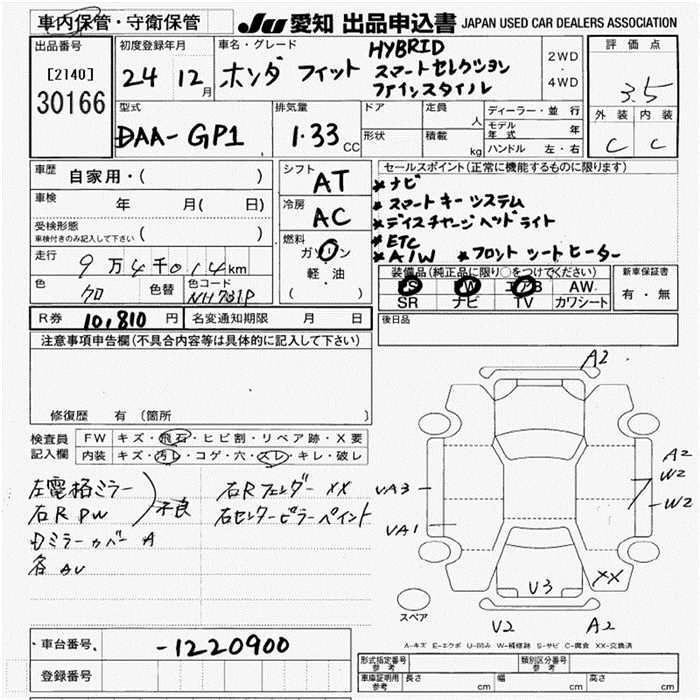 車内保管・守衛保管
JU 愛知 出品申込書 JAPAN USED CAR DEALERS ASSOCIATION
出品番号
[2140]
30166
初度登録年月
24 12月
車名・グレード
ホンダ フィット
HYBRID
スマートセレクション
ファインスタイル
2WD
・
4WD
評価点
3.5
外装 内装
C C
型式
DAA-GP1
排気量
1.33cc
ドア
形状
定員 人
積載 kg
ディーラー・並行
モデル年式 年
ハンドル 左・右
車歴 自家用・( )
車検 年 月( 日)
受検形態
車検付きのみ記入して下さい ( )
走行 9万4千014km
色 クロ 色替 色コード NH731P
シフト AT
冷房 AC
燃料
ガソリン
軽油
( )
セールスポイント(正常に機能するものに限ります)
*ナビ
*スマートキーシステム
*ディスチャージヘッドライト
*ETC
*A/W *フロントシートヒーター
装備品(純正品に限り○をつけてください)
PS PW エアB AW
SR ナビ TV カワシート
新車保証書
有・無
R券 10,810円 名変通知期限 月 日
後日品
注意事項申告欄(不具合内容等は具体的に記入して下さい)
修復歴 有(箇所 )
検査員記入欄
FW キズ・飛石・ヒビ割・リペア跡・X要
内装 キズ・汚レ・コゲ・穴・スレ・キレ・破レ
左電格ミラー
右R PW
不良
Dミラーカバー A
各AU
右Rフェンダー XX
右センターピラーペイント
A2
VA3
VA1
A2
W2
W2
V3
XX
スペア
V2
A2
A-キズ E-エクボ U-凹み W-補修跡 S-サビ C-腐食 XX-交換済
・車台番号、 -1220900
登録番号
形式指定番号
参考
類別区分番号
参考
車庫証明用
参考
長さ cm 幅 cm 高さ cm